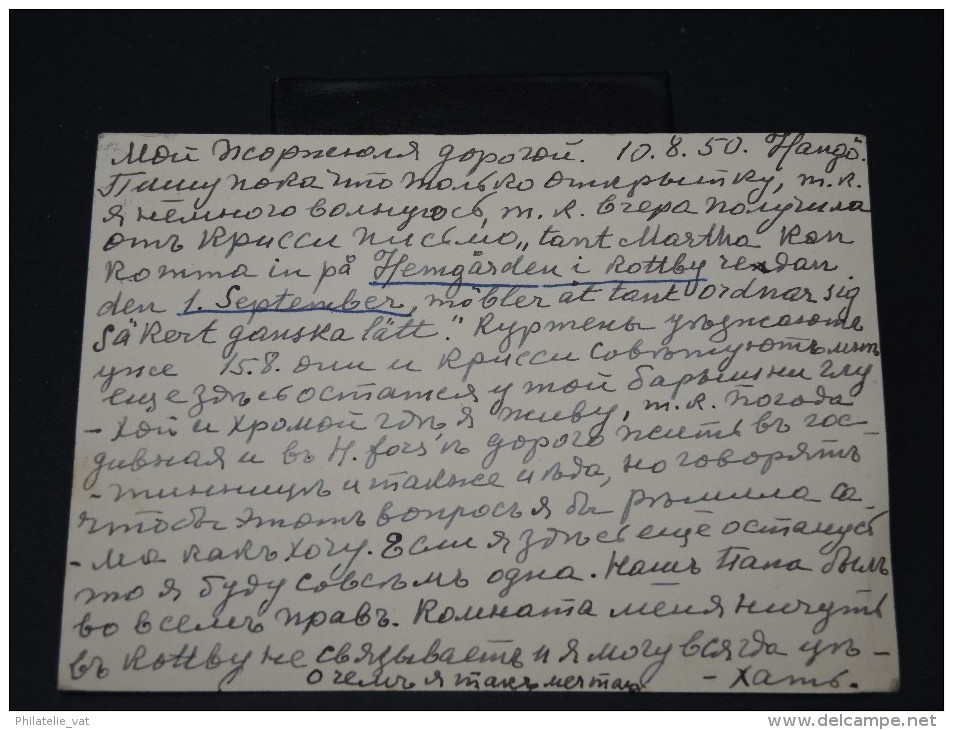 Мой Жоржюля дорогой. 10.8.50. Hangö.
Пишу пока что только открытку, т.к.
я немного волнуюсь, т.к. вчера получила
отъ Крисси письмо „tant Martha kan
komma in på Hemgården i Kottby redan
den 1. September, möbler at tant ordnar sig
säkert ganska lätt". Куржены уѣзжаютъ
уже 15.8. они и Крисси совѣтуютъ мнѣ
еще здѣсь остаться у той барышни глу
- хой и хромой гдѣ я живу, т.к. погода
дивная и въ H.fors'ѣ дорого жить въ гос-
- тинницѣ и также и ѣда, но говорятъ
чтобы этотъ вопросъ я бы рѣшила са
- ма какъ хочу. Если я здѣсь еще останусь
то я буду совсѣмъ одна. Нашъ Папа былъ
во всемъ правъ. Комната меня ничуть
въ Kottby не связываетъ и я могу всягда уѣ -
о чемъ я такъ мечтаю - хать.
Philatelie_vat
http://www.delcampe.net